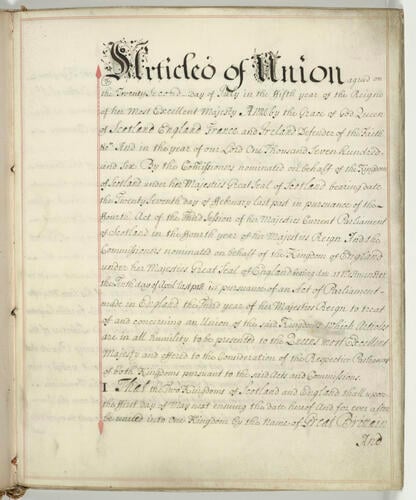 Articles of Union agreed on
the Twenty Second Day of July in the fifth year of the Reigne
of her Most Excellent Majesty Anne by the Grace of God Queen
of Scotland England France and Ireland Defender of the Faith
&c And in the year of our Lord One Thousand Seven hundred
and Six By the Comissioners nominated on behalf of the Kingdom
of Scotland under her Majesties Great Seal of Scotland bearing date
the Twenty Seventh day of February last past in pursuance of the
fourth Act of the third Session of her Majesties Current Parliament
of Scotland in the fourth year of her Majesties Reign And the
Commissioners nominated on behalf of the Kingdom of England
under her Majesties Great Seal of England bearing date at Westminster
the Tenth day of April last past in pursuance of an Act of Parliament
made in England the third year of her Majesties Reign to treat
of and concerning an Union of the said Kingdoms Which Articles
are in all humility to be presented to the Queens most Excellent
Majesty and offered to the Consideration of the Respective Parliaments
of both Kingdoms pursuant to the said Acts and Commissions.
I That the two Kingdoms of Scotland and England shall upon
the first day of May next ensuing the date hereof And for ever after
be united into One Kingdom by the Name of Great Brittain
And